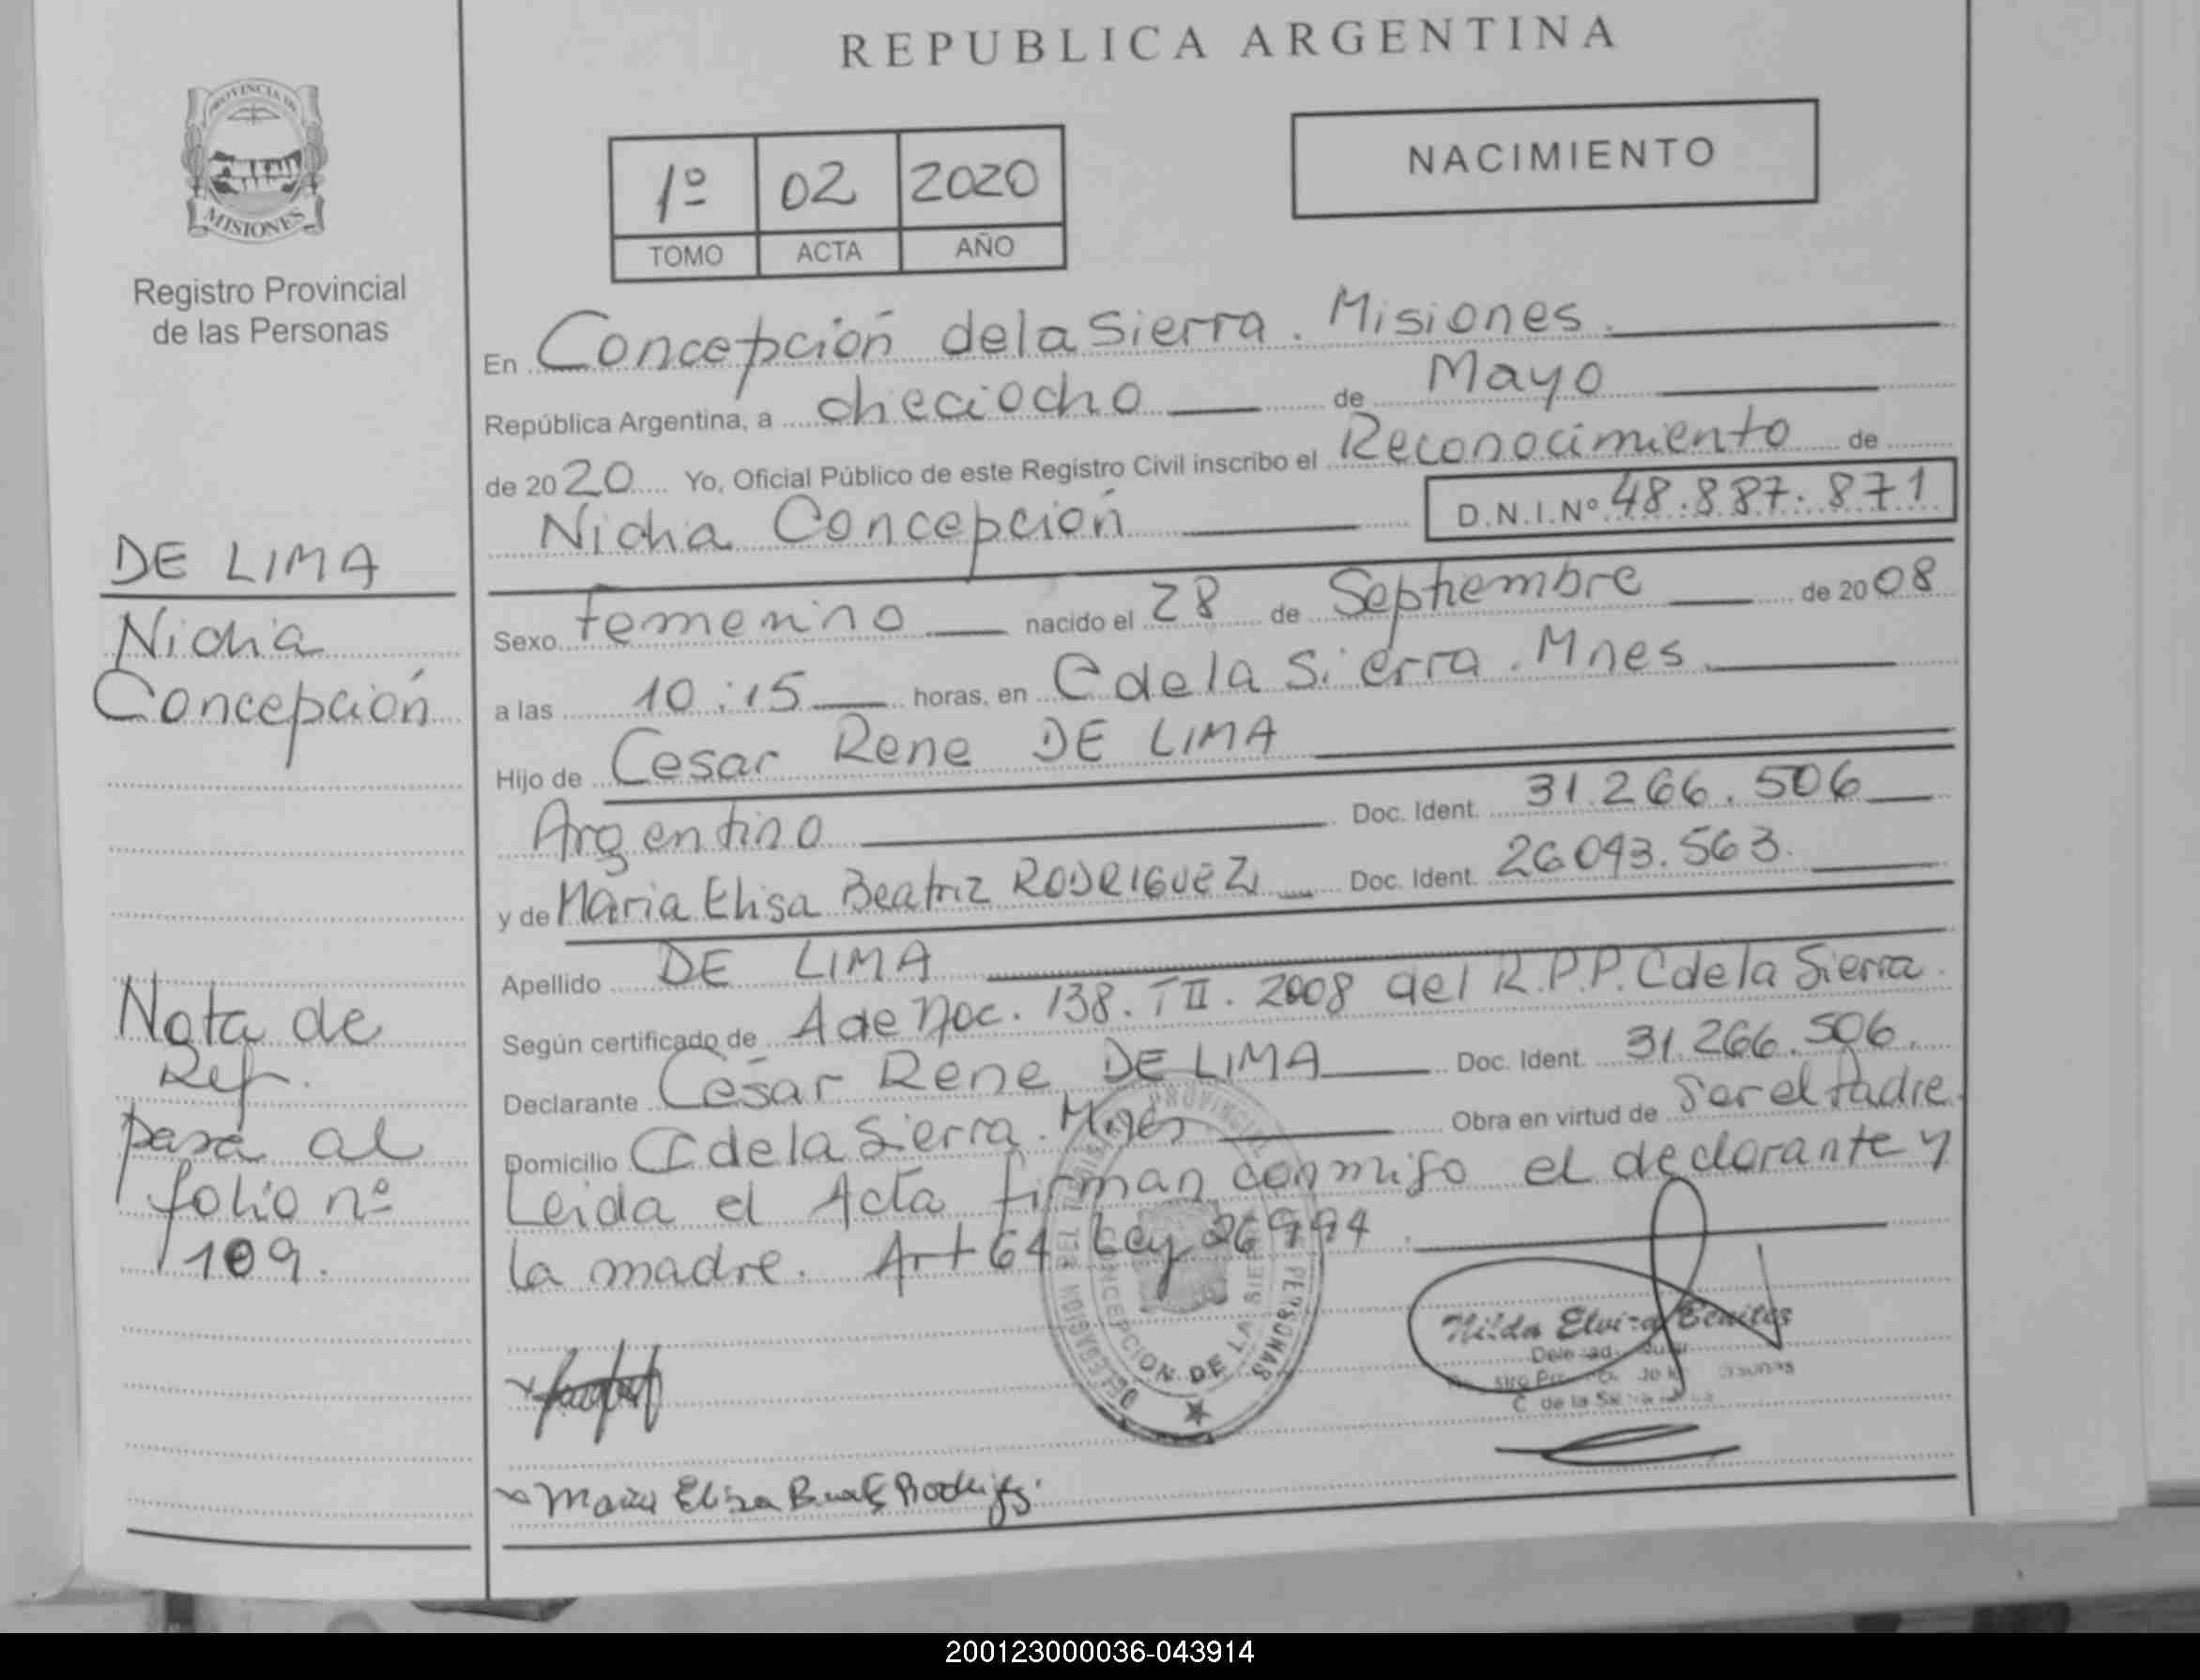 REPUBLICA ARGENTINA
PROVINCIA DE
MISIONES
Registro Provincial
de las Personas
1º 02 2020
TOMO ACTA AÑO
NACIMIENTO
En Concepción de la Sierra. Misiones.
República Argentina, a dieciocho de Mayo
de 2020 Yo, Oficial Público de este Registro Civil inscribo el Reconocimiento de
Nidia Concepción D.N.I.Nº 48.887.871
DE LIMA
Nidia
Concepción
Sexo femenino nacido el 28 de Septiembre de 2008
a las 10:15 horas, en C de la Sierra. Mnes.
Hijo de Cesar Rene DE LIMA
Argentino Doc. Ident. 31.266.506
y de Maria Elisa Beatriz RODRIGUEZ Doc. Ident. 26.093.563.
Apellido DE LIMA
Según certificado de A de Nac. 138. T II. 2008 del R.P.P. C de la Sierra.
Declarante Cesar Rene DE LIMA Doc. Ident. 31.266.506.
Domicilio C de la Sierra. Mnes Obra en virtud de Ser el Padre.
Leida el Acta firman conmigo el declarante y
la madre. Art 64 Ley 26994.
Nota de
Ref.
pasa al
folio nº
109.
DELEGACION DEL REGISTRO PROVINCIAL DE PERSONAS
CONCEPCION DE LA SIERRA
Hilda Elvira Benitez
C. de la Sierra
Maria Elisa Beatriz Rodriguez
200123000036-043914